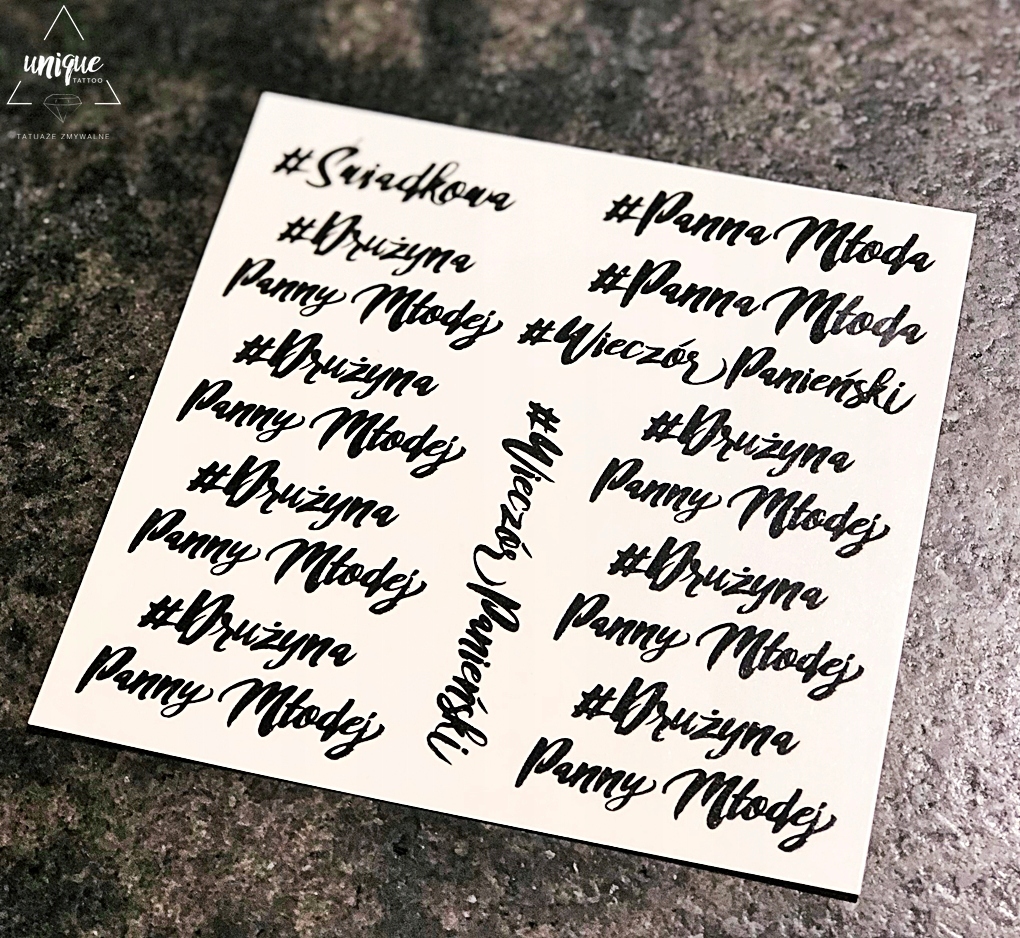 unique
TATTOO
TATUAŻE ZMYWALNE
#Świadkowa
#Drużyna
Panny Młodej
#Drużyna
Panny Młodej
#Drużyna
Panny Młodej
#Drużyna
Panny Młodej
#Wieczór Panieński
#Panna Młoda
#Panna Młoda
#Wieczór Panieński
#Drużyna
Panny Młodej
#Drużyna
Panny Młodej
#Drużyna
Panny Młodej